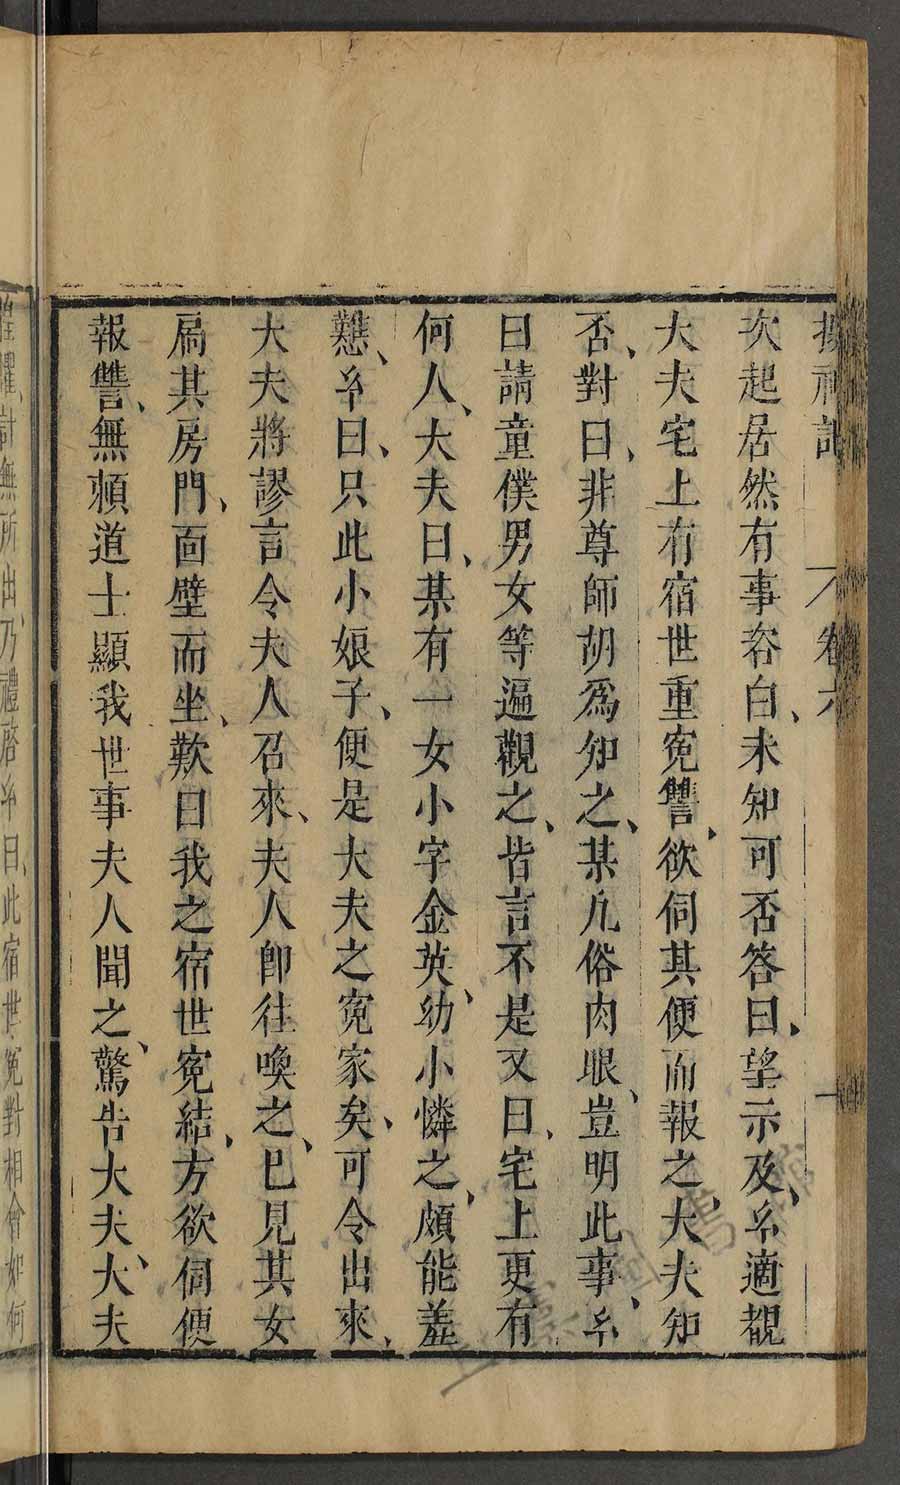 搜神記 卷六 十
次起居然有事咨白、未知可否答曰、望示及、糸適覩
大夫宅上有宿世重寃讐、欲伺其便而報之、大夫知
否、對曰、非尊師胡爲知之、某凡俗肉眼、豈明此事、糸
曰請童僕男女等遍觀之、皆言不是又曰、宅上更有
何人、大夫曰、某有一女小字金英、幼小憐之、頗能羞
𢡖、糸曰、只此小娘子、便是大夫之寃家矣、可令出來、
大夫將謬言令夫人召來、夫人卽往喚之、已見其女
扃其房門、面壁而坐、歎曰我之宿世寃結、方欲伺便
報讐、無頼道士顯我世事夫人聞之、驚告大夫、大夫
惶懼、計無所出、乃禮啓糸曰、此宿世寃對相會如何